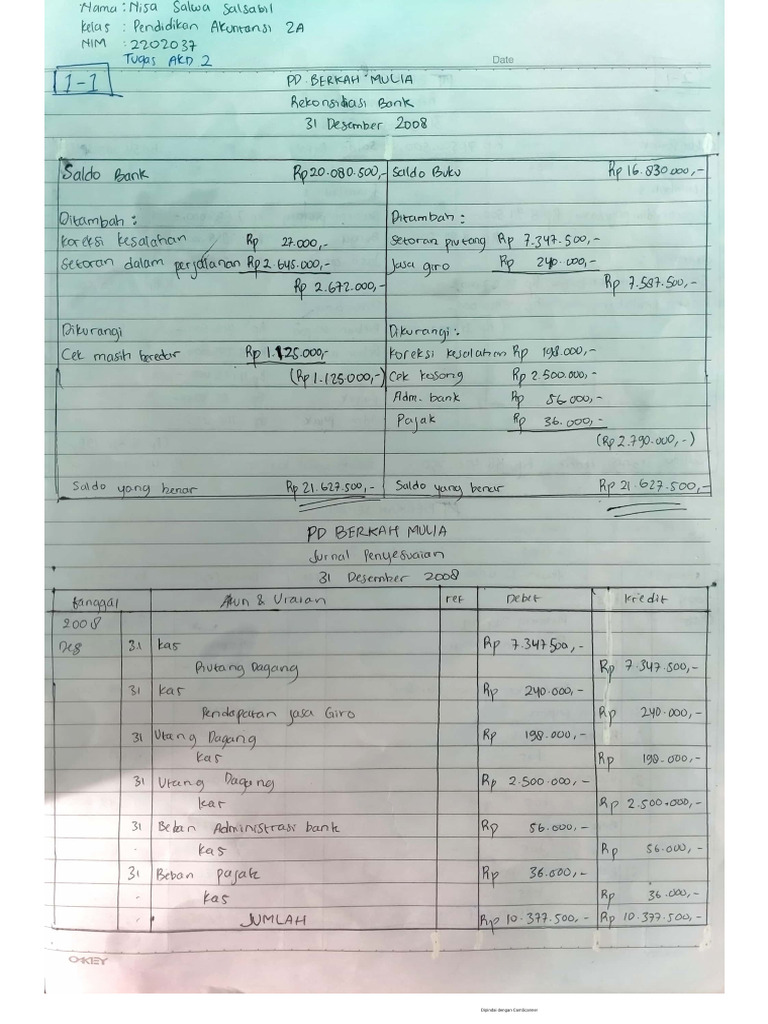 Nama : Nisa Salwa Salsabil
Kelas : Pendidikan Akuntansi 2A
NIM : 2202037
Tugas AKD 2
Date
1-1
PD BERKAH MULIA
Rekonsiliasi Bank
31 Desember 2008
Saldo Bank Rp20.080.500,- Saldo Buku Rp 16.830.000,-
Ditambah : Ditambah :
Koreksi kesalahan Rp 27.000,- Setoran piutang Rp 7.347.500,-
Setoran dalam perjalanan Rp 2.645.000,- Jasa giro Rp 240.000,-
Rp 2.672.000,- Rp 7.587.500,-
Dikurangi Dikurangi :
Cek masih beredar Rp 1.125.000,- Koreksi kesalahan Rp 198.000,-
(Rp 1.125.000,-) Cek kosong Rp 2.500.000,-
Adm. bank Rp 56.000,-
Pajak Rp 36.000,-
(Rp 2.790.000,-)
Saldo yang benar Rp 21.627.500,- Saldo yang benar Rp 21.627.500,-
PD BERKAH MULIA
Jurnal Penyesuaian
31 Desember 2008
tanggal Akun & Uraian ref Debet Kredit
2008
Des 31 Kas Rp 7.347.500,-
Piutang Dagang Rp 7.347.500,-
31 Kas Rp 240.000,-
Pendapatan Jasa Giro Rp 240.000,-
31 Utang Dagang Rp 198.000,-
Kas Rp 198.000,-
31 Utang Dagang Rp 2.500.000,-
Kas Rp 2.500.000,-
31 Beban Administrasi bank Rp 56.000,-
Kas Rp 56.000,-
31 Beban pajak Rp 36.000,-
Kas Rp 36.000,-
JUMLAH Rp 10.377.500,- Rp 10.377.500,-
OKEY
Dipindai dengan CamScanner